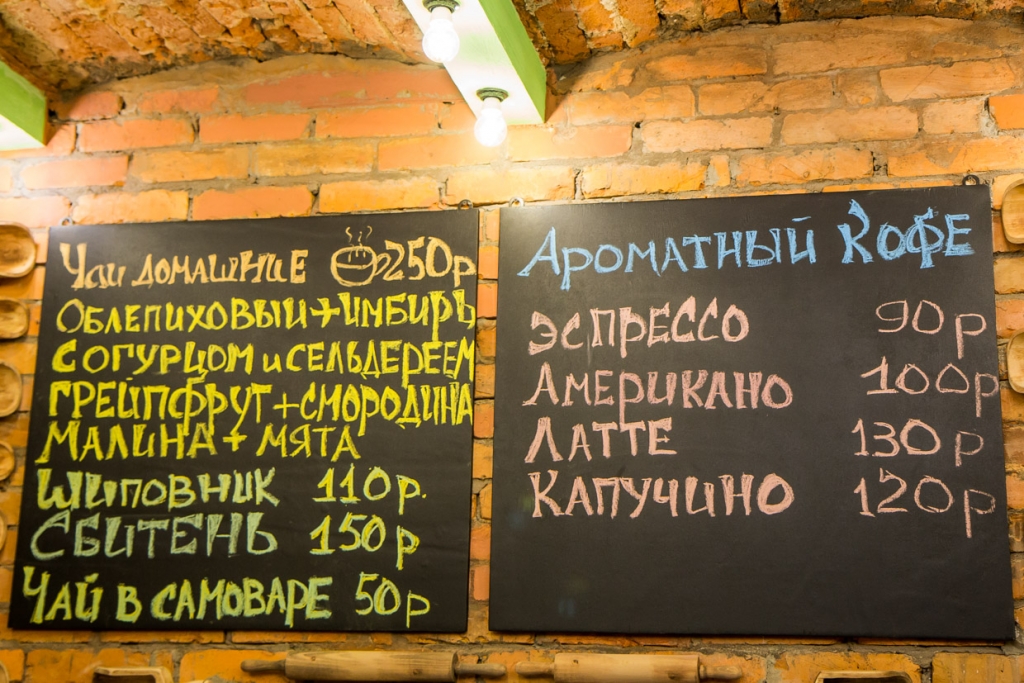 Чаи домашние 250р
Облепиховый+имбирь
с огурцом и сельдереем
грейпфрут+смородина
малина+мята
Шиповник 110р.
Сбитень 150р
Чай в самоваре 50р
Ароматный Кофе
Эспрессо 90р
Американо 100р
Латте 130р
Капучино 120р